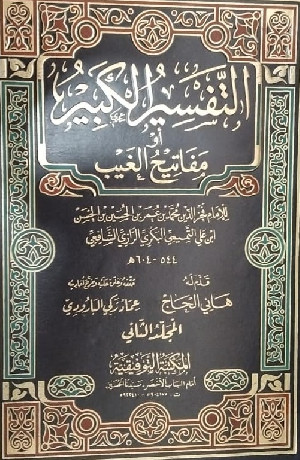 التَّفسِيرُ الكَبِيرُ
أو
مفاتيح الغيب
للإمام فخر الدين محمد بن عمر بن الحسين بن الحسن
ابن علي التميمي البكري الرازي الشافعي
٥٤٤-٦٠٤هـ
قدّم له
هاني الحاج
حققه وعلق عليه وخرج أحاديثه
عماد زكي البارودي
المجلد الثاني
المكتبة التوفيقية
أمام الباب الأخضر - سيدنا الحسين